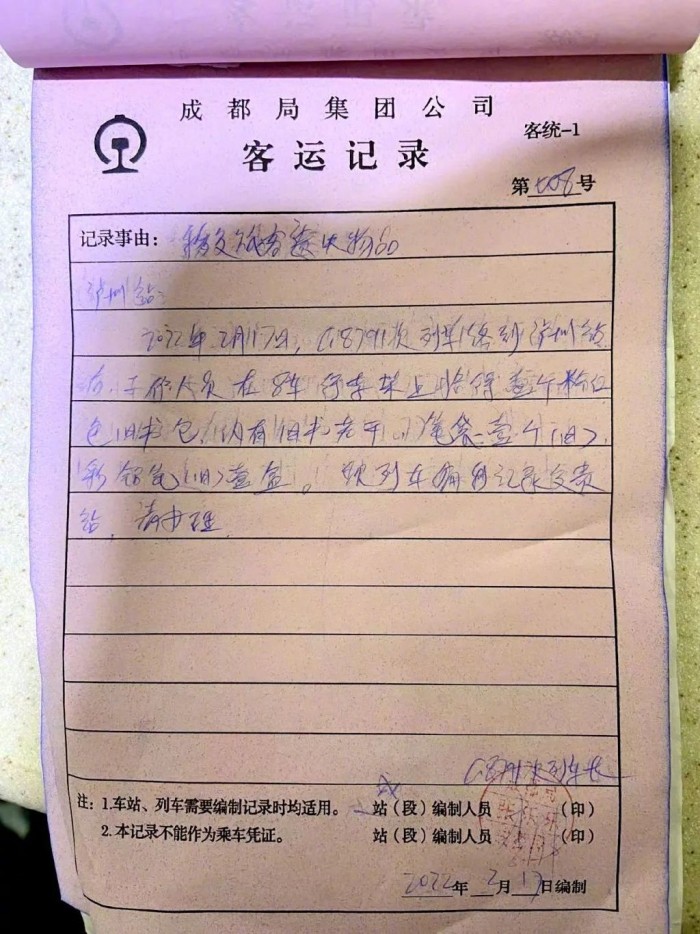 成都局集团公司
客统-1
客运记录
第 508 号
记录事由： 移交旅客遗失物品
泸州站：
2022年2月17日，C8791次列车终到泸州站
后，工作人员在8车行李架上拾得壹个粉红
色旧书包（内有旧书若干、笔袋壹个（旧）、
彩铅包（旧）壹盒。现列车编制记录交贵
站，请办理
次列车长
注：1.车站、列车需要编制记录时均适用。 站（段）编制人员 （印）
2.本记录不能作为乘车凭证。 站（段）编制人员 （印）
2022年 2月17日编制